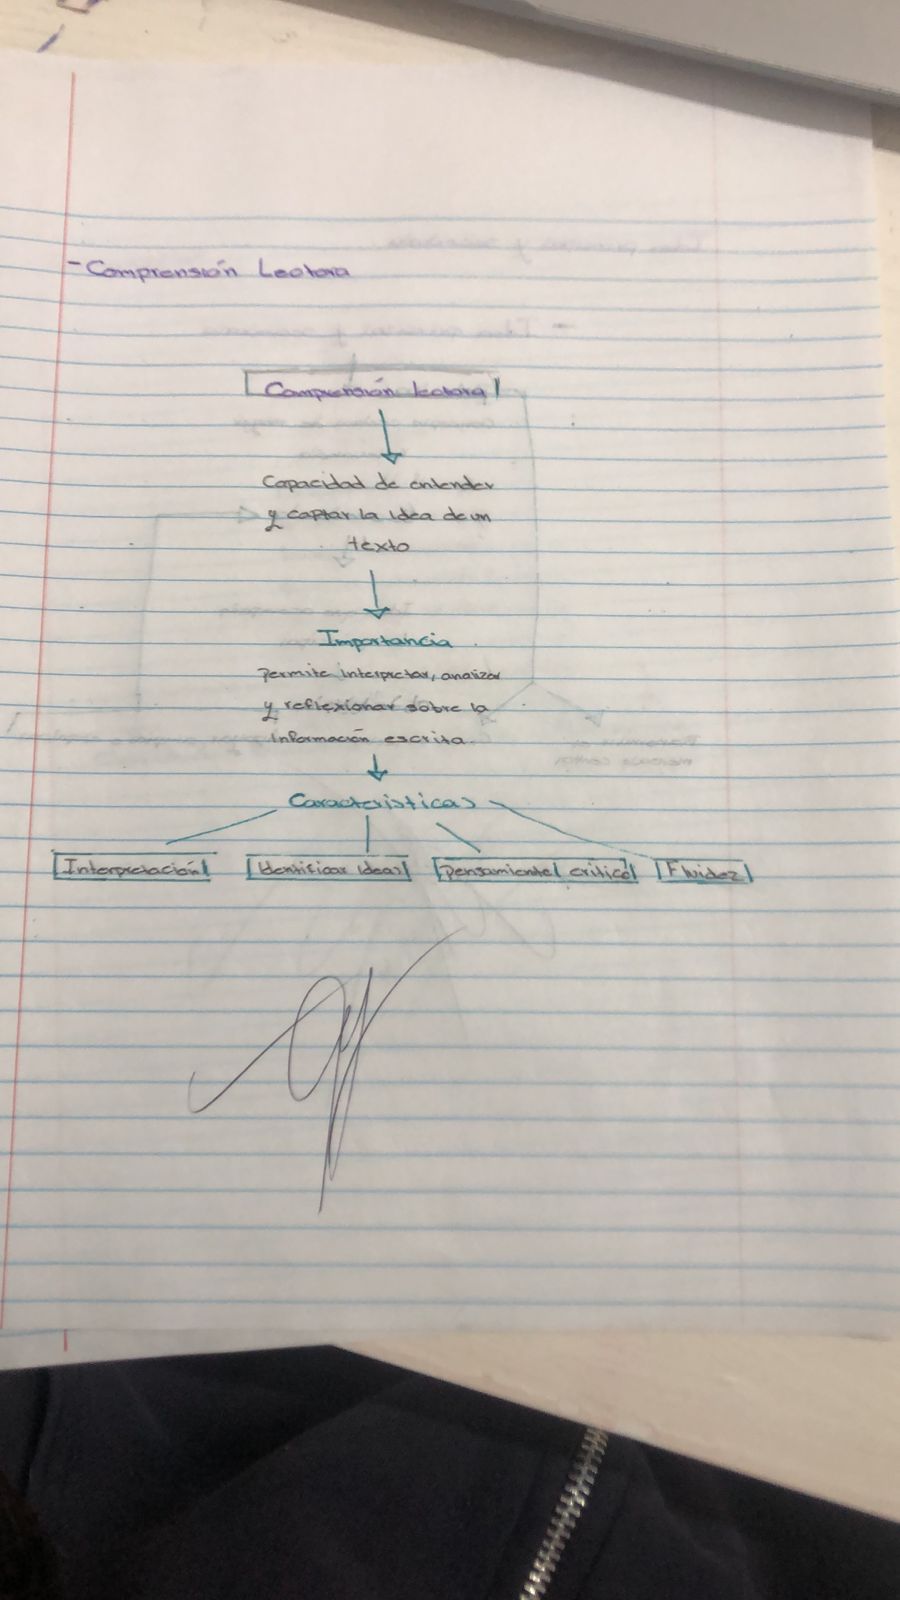 - Comprensión Lectora
Comprensión lectora
Capacidad de entender
y captar la idea de un
texto
Importancia
permite interpretar, analizar
y reflexionar sobre la
información escrita.
Características
Interpretación
Identificar ideas
pensamiento crítico
Fluidez